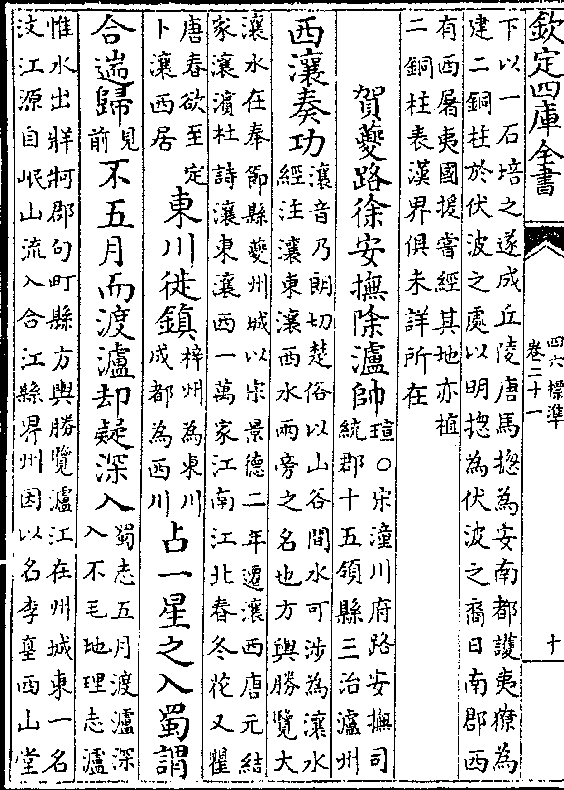 欽定四庫全書
四六標準
卷二十一
十
下以一石培之遂成丘陵唐馬揔為安南都護夷獠為
建二銅柱於伏波之處以明揔為伏波之裔日南郡西
有西屠夷國援嘗經其地亦植
二銅柱表漢界俱未詳所在
賀夔路徐安撫除瀘帥
瑄○宋潼川府路安撫司
統郡十五領縣三治瀘州
西瀼奏功
瀼音乃朗切楚俗以山谷間水可涉為瀼水
經注瀼東瀼西水兩旁之名也方輿勝覽大
瀼水在奉節縣夔州城以宋景德二年遷瀼西唐元結
家瀼濱杜詩瀼東瀼西一萬家江南江北春冬花又瞿
唐春欲至定
卜瀼西居
東川徙鎮
梓州為東川
成都為西川
占一星之入蜀謂
合遄歸
見
前
不五月而渡瀘却疑深入
蜀志五月渡瀘深
入不毛地理志瀘
惟水出牂牁郡句町縣方輿勝覽瀘江在州城東一名
汶江源自岷山流入合江縣界州因以名李𡌴西山堂